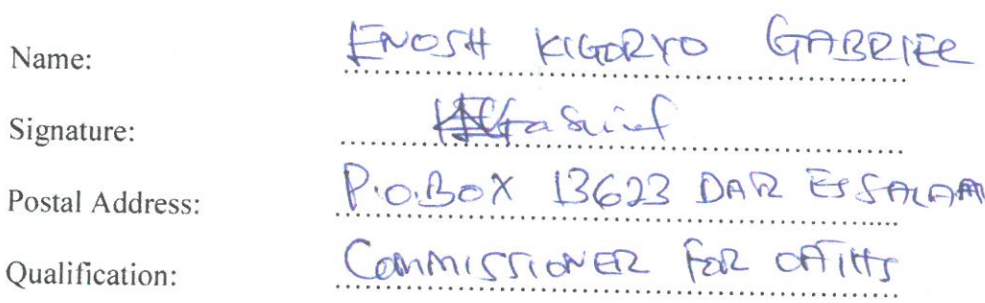 Name: ENOSH KIGORYO GABRIEL
Signature:
Postal Address: P.O.BOX 13623 DAR ES SALAAM
Qualification: COMMISSIONER FOR OATHS